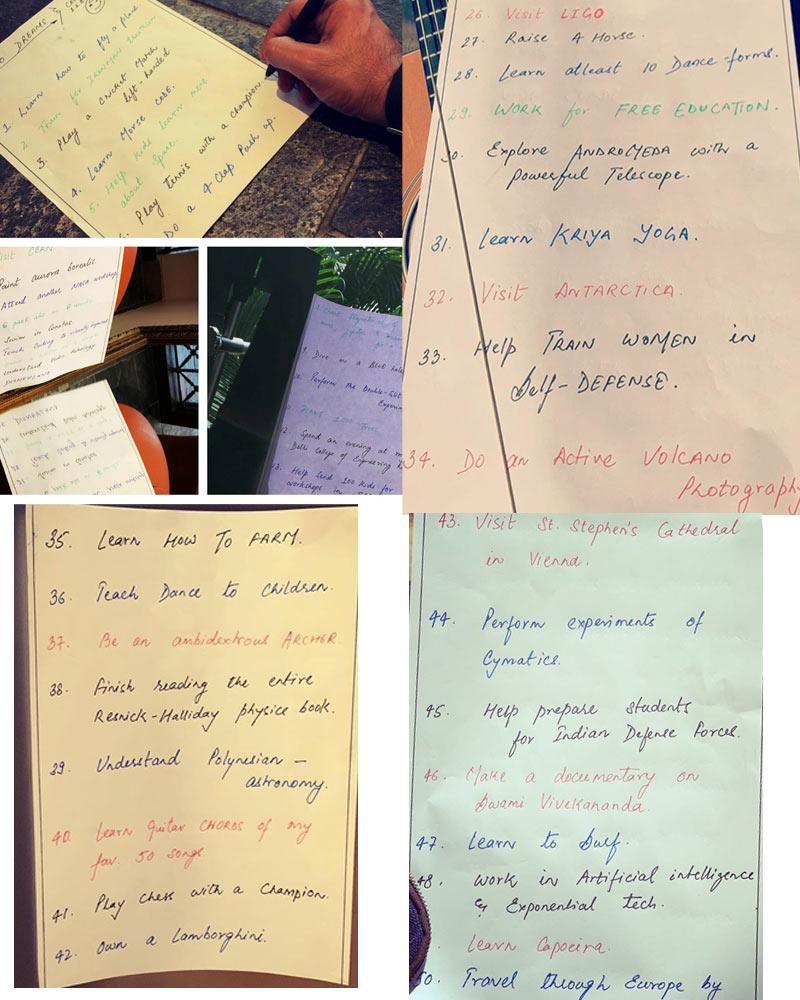 DREAMS
1. Learn how to fly a Plane
2. Train for IRONMAN triathlon
3. Play a Cricket Match
left-handed
4. Learn Morse Code.
5. Help kids learn more
about Space.
6. Play Tennis with a Champion
Do a 4 Clap Push up.
Visit CERN.
Paint aurora borealis.
Attend another NASA workshop
6 pack abs in
9. Dive in a Blue hole
Perform the Double-Slit
Experim
Plant 1000 Trees
12. Spend an evening at m
Delhi College of Engineering
13. Help Send 100 kids for
workshops in
26. Visit LIGO
27. Raise A Horse.
28. Learn atleast 10 Dance-forms.
29. WORK for FREE EDUCATION.
30. Explore ANDROMEDA with a
powerful Telescope.
31. Learn KRIYA YOGA.
32. Visit ANTARCTICA.
33. Help TRAIN WOMEN in
Self-DEFENSE.
34. Do an Active VOLCANO
Photography
35. Learn HOW TO FARM.
36. Teach Dance to Children.
37. Be an ambidextrous ARCHER
38. Finish reading the entire
Resnick-Halliday physics book.
39. Understand Polynesian -
astronomy.
40. Learn Guitar CHORDS of my
fav. 50 songs.
41. Play Chess with a Champion.
42. Own a Lamborghini.
43. Visit St. Stephen's Cathedral
in Vienna.
44. Perform experiments of
Cymatics.
45. Help prepare students
for Indian Defense Forces.
46. Make a documentary on
Swami Vivekananda.
47. Learn to Surf.
48. Work in Artificial intelligence
& Exponential tech.
Learn Capoeira.
50. Travel through Europe by